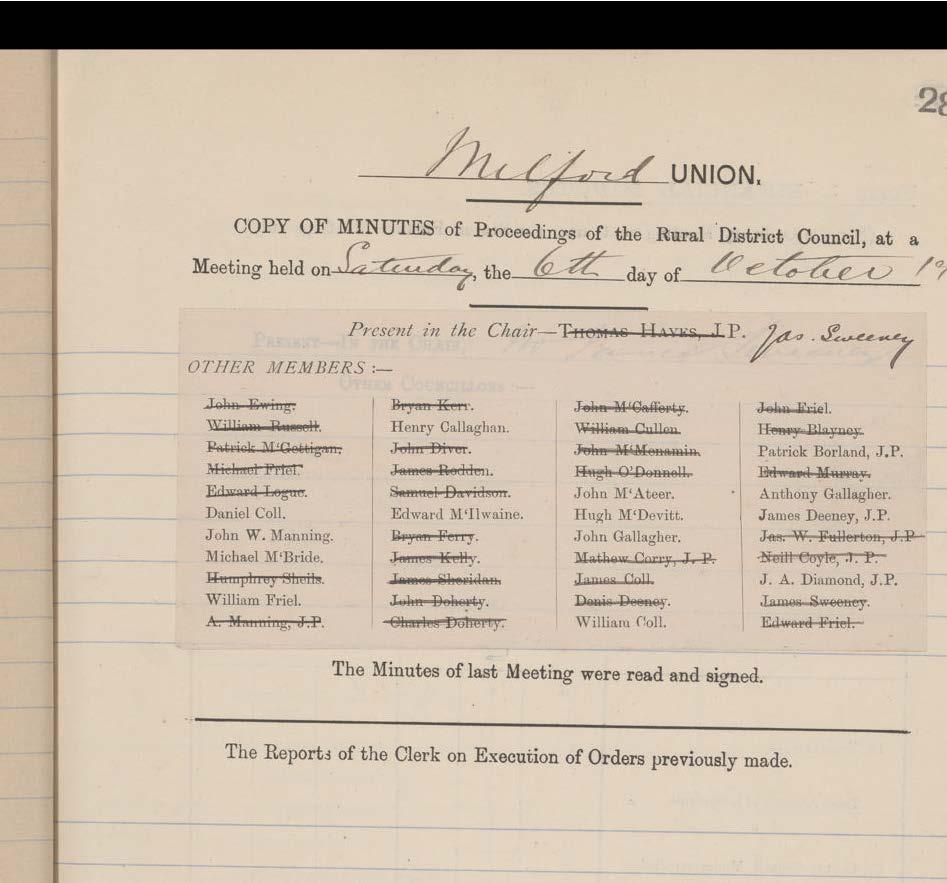 28
Milford UNION.
COPY OF MINUTES of Proceedings of the Rural District Council, at a
Meeting held on Saturday, the 6th day of October 19
Present in the Chair—THOMAS HAYES, J.P. Jas. Sweeney
OTHER MEMBERS :—
John Ewing. Bryan Kerr. John M‘Cafferty. John Friel.
William Russell. Henry Callaghan. William Cullen. Henry Blayney.
Patrick M‘Gettigan, John Diver. John M‘Menamin. Patrick Borland, J.P.
Michael Friel. James Redden. Hugh O’Donnell. Edward Murray.
Edward Logue. Samuel Davidson. John M‘Ateer. Anthony Gallagher.
Daniel Coll. Edward M‘Ilwaine. Hugh M‘Devitt. James Deeney, J.P.
John W. Manning. Bryan Ferry. John Gallagher. Jas. W. Fullerton, J.P
Michael M‘Bride. James Kelly. Mathew Corry, J. P. Neill Coyle, J. P.
Humphrey Sheils. James Sheridan. James Coll. J. A. Diamond, J.P.
William Friel. John Doherty. Denis Deeney. James Sweeney.
A. Manning, J.P. Charles Doherty. William Coll. Edward Friel.
The Minutes of last Meeting were read and signed.
The Reports of the Clerk on Execution of Orders previously made.